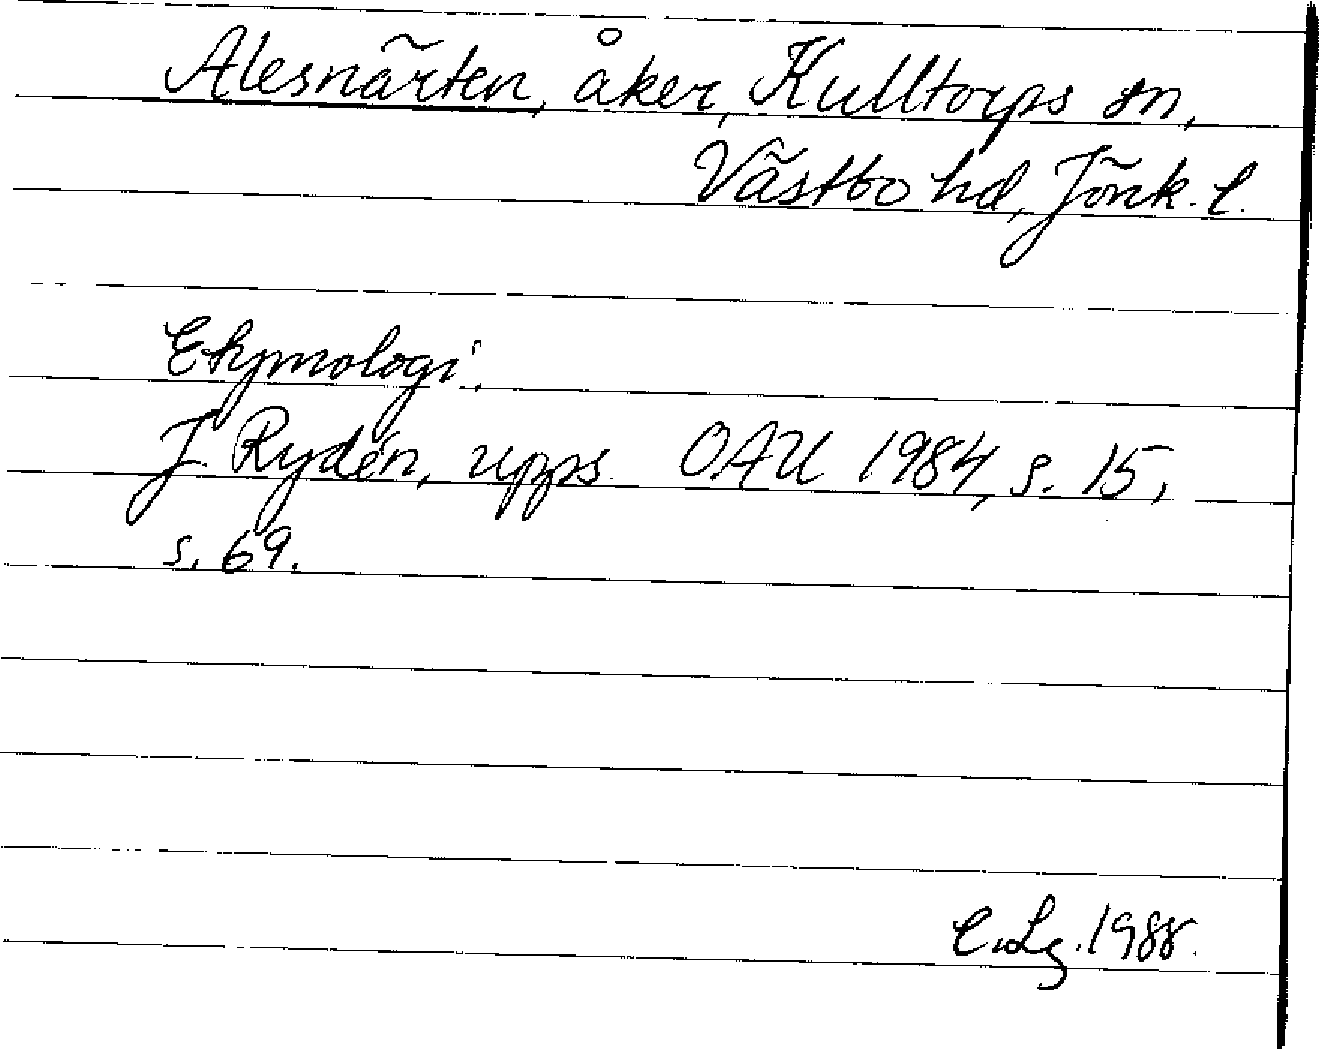 Alesnärten, åker, Kulltorps sn,
Västbo hd, Jönk. l.
Etymologi:
J. Rydén, upps. OAU 1984, s. 15,
s. 69.
C. Lg. 1988.